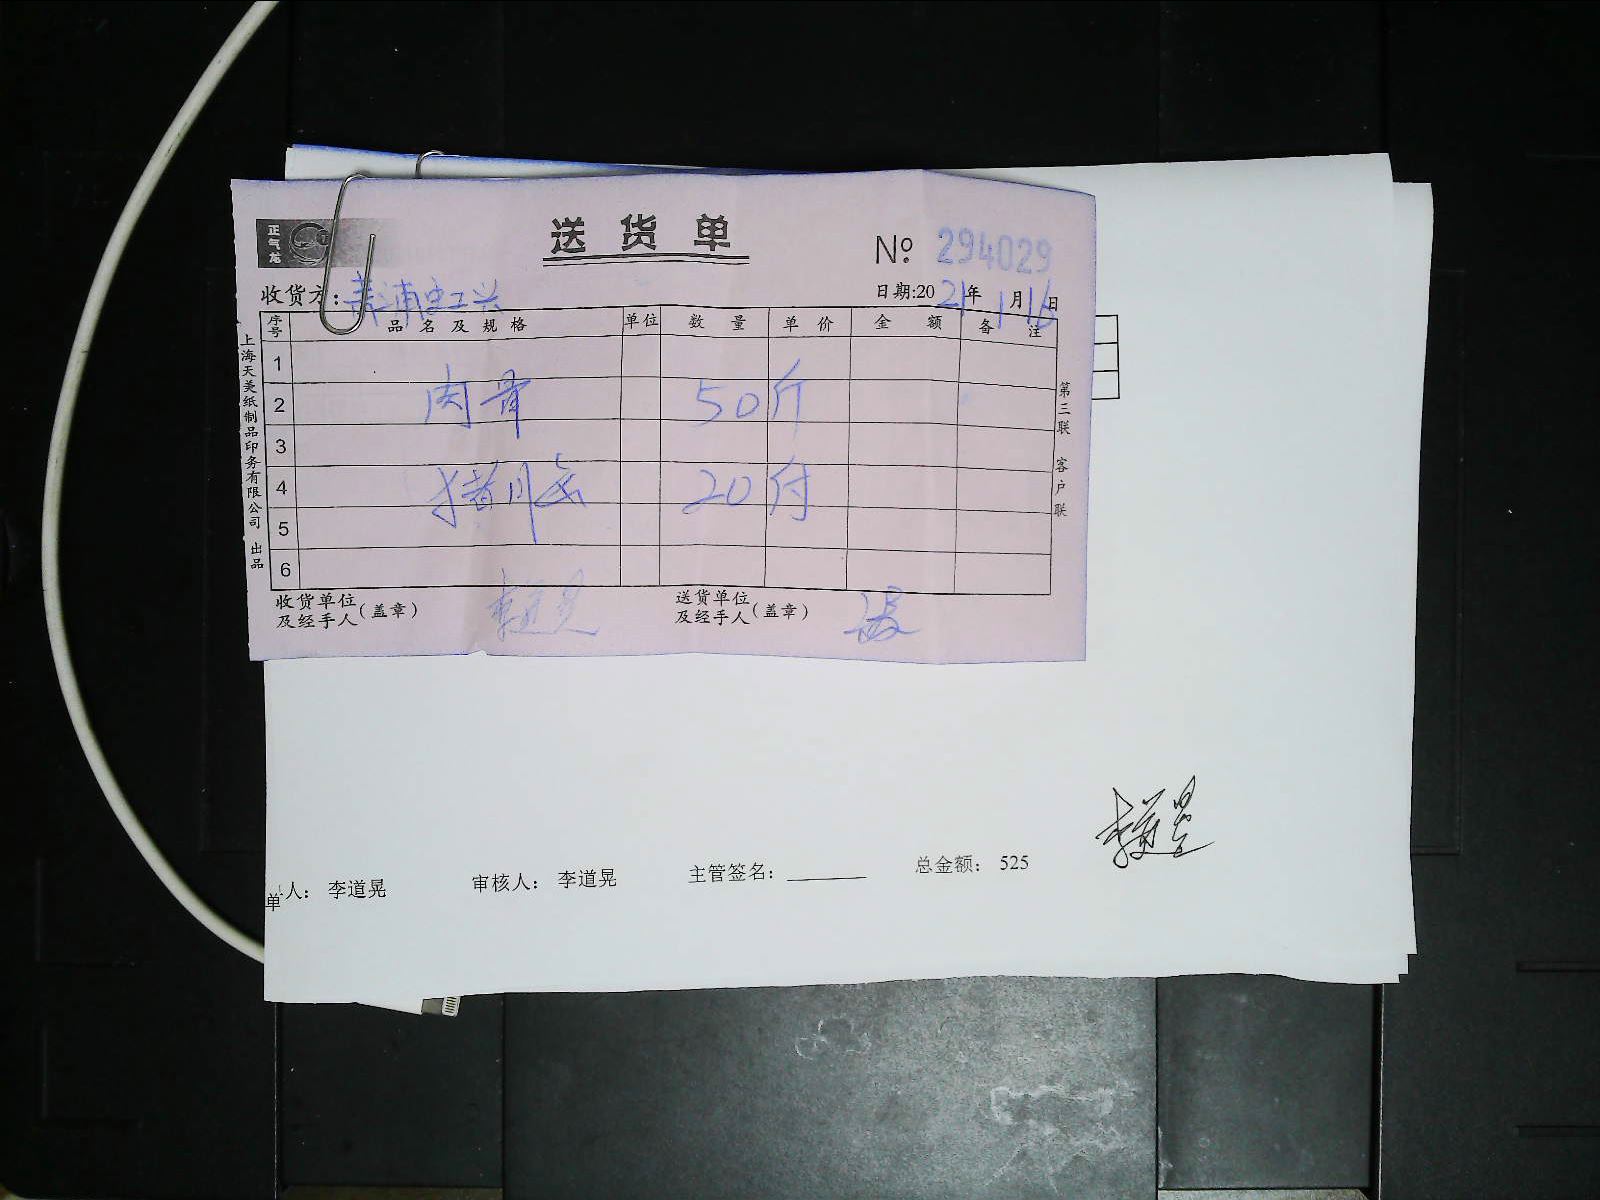 正气龙
送货单
No. 294029
收货方:青浦
日期:2021年1月16日
序号 品名及规格 单位 数量 单价 金额 备注
1
2 肉骨 50斤
3
4 猪 20付
5
6
收货单位及经手人(盖章) 李道晃
送货单位及经手人(盖章)
上海天美纸制品印务有限公司 出品
第三联 客户联
李道晃
单人: 李道晃 审核人: 李道晃 主管签名: 总金额: 525